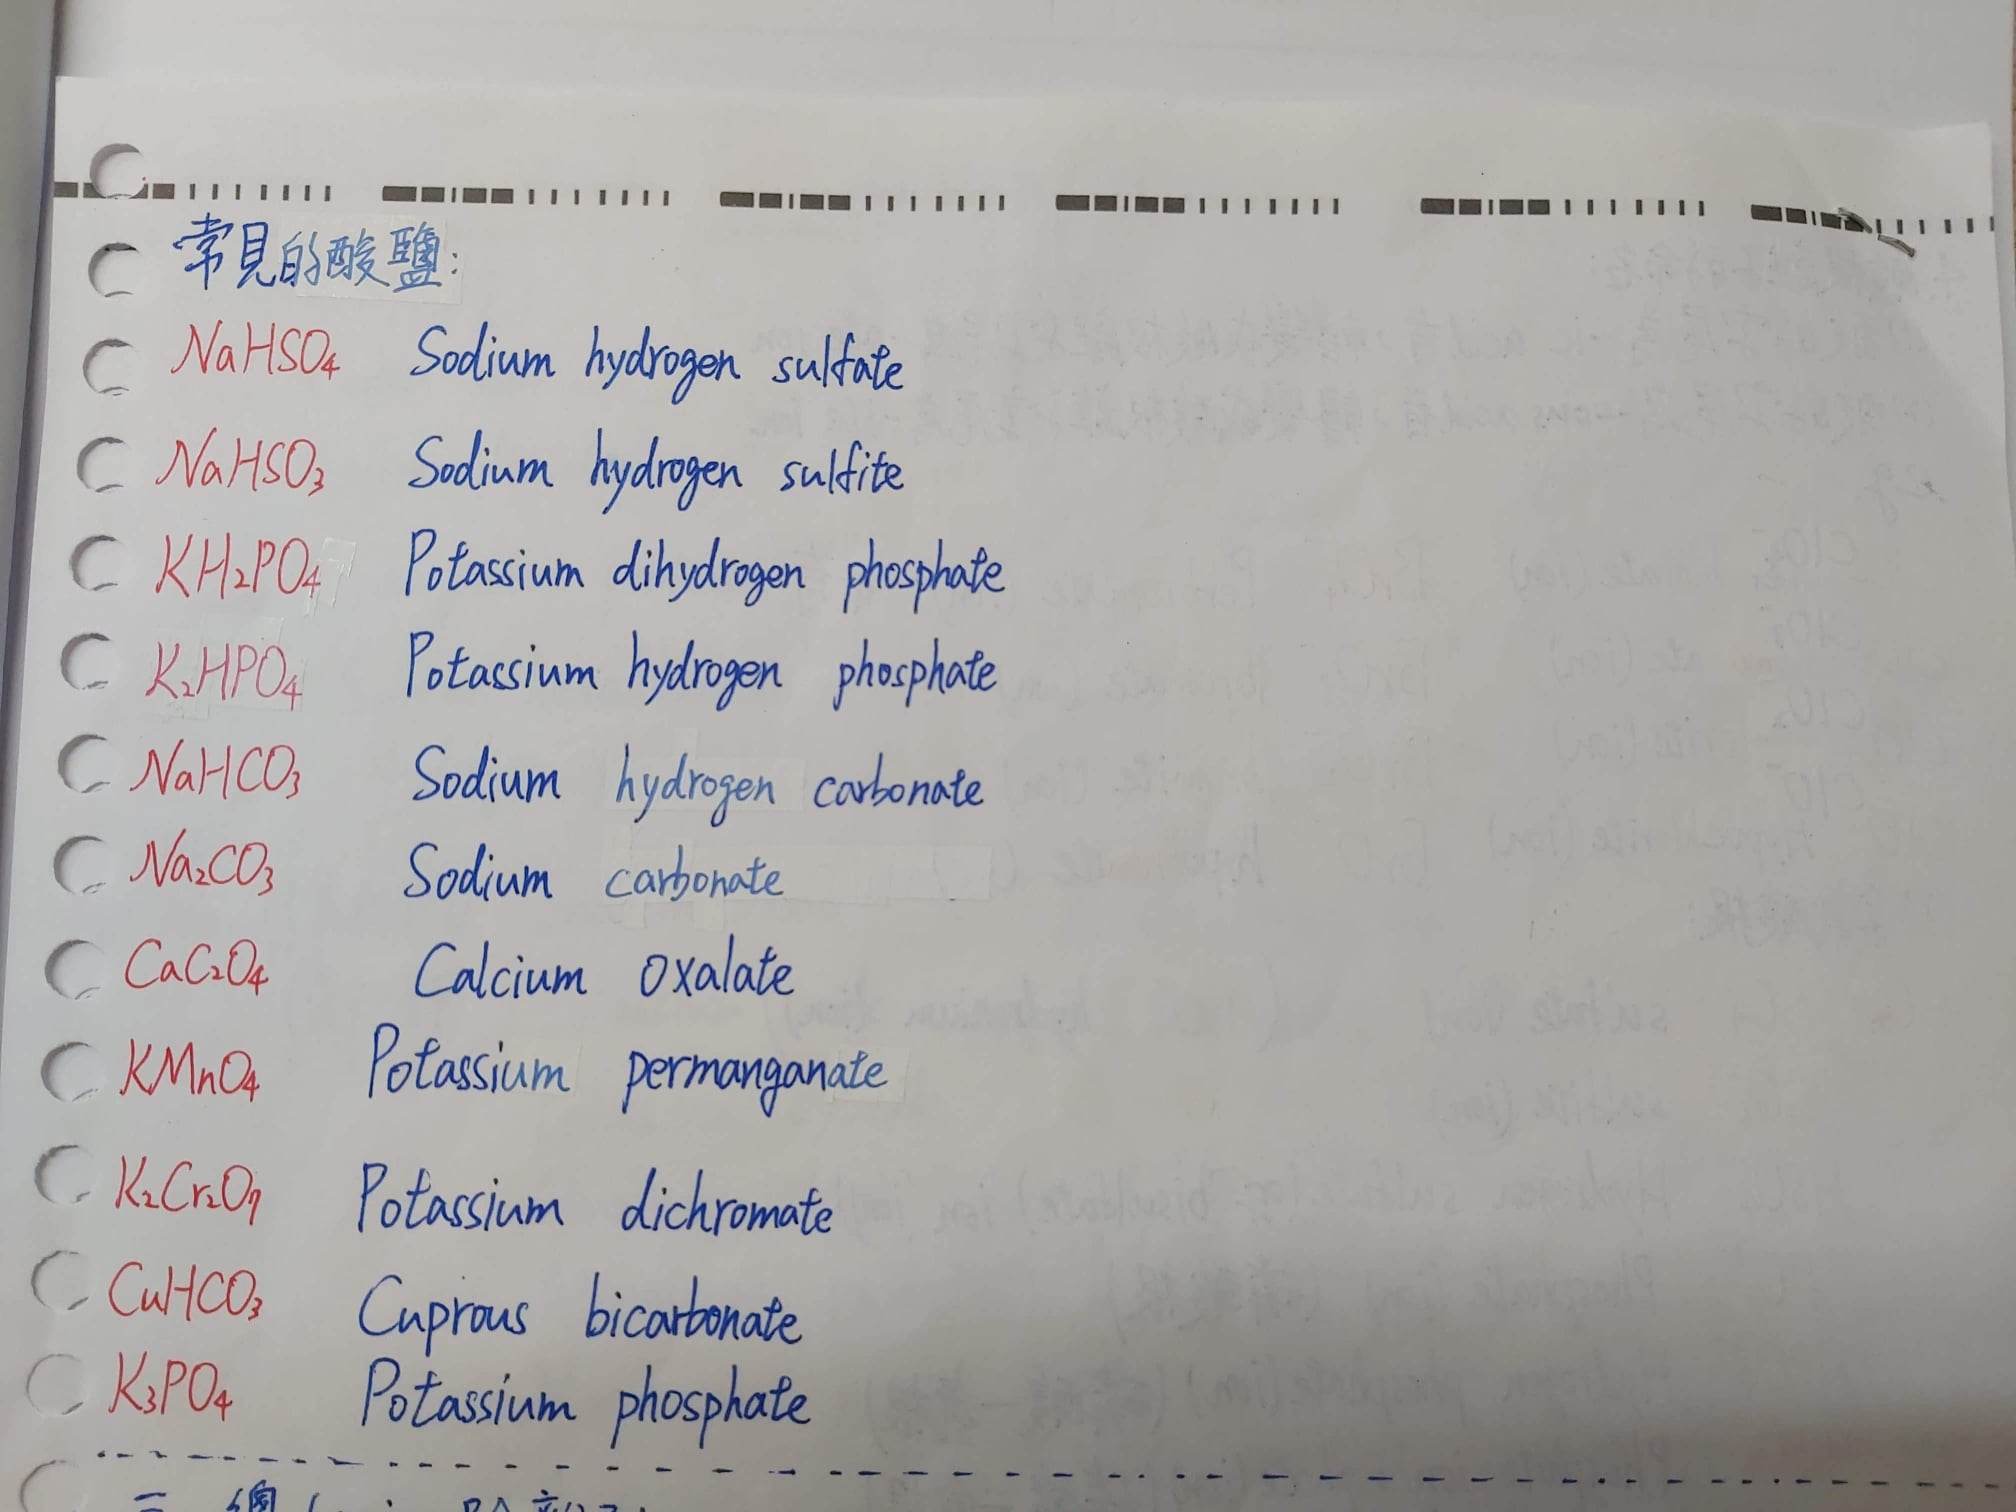 常見的酸鹽:
NaHSO₄ Sodium hydrogen sulfate
NaHSO₃ Sodium hydrogen sulfite
KH₂PO₄ Potassium dihydrogen phosphate
K₂HPO₄ Potassium hydrogen phosphate
NaHCO₃ Sodium hydrogen carbonate
Na₂CO₃ Sodium carbonate
CaC₂O₄ Calcium oxalate
KMnO₄ Potassium permanganate
K₂Cr₂O₇ Potassium dichromate
CuHCO₃ Cuprous bicarbonate
K₃PO₄ Potassium phosphate